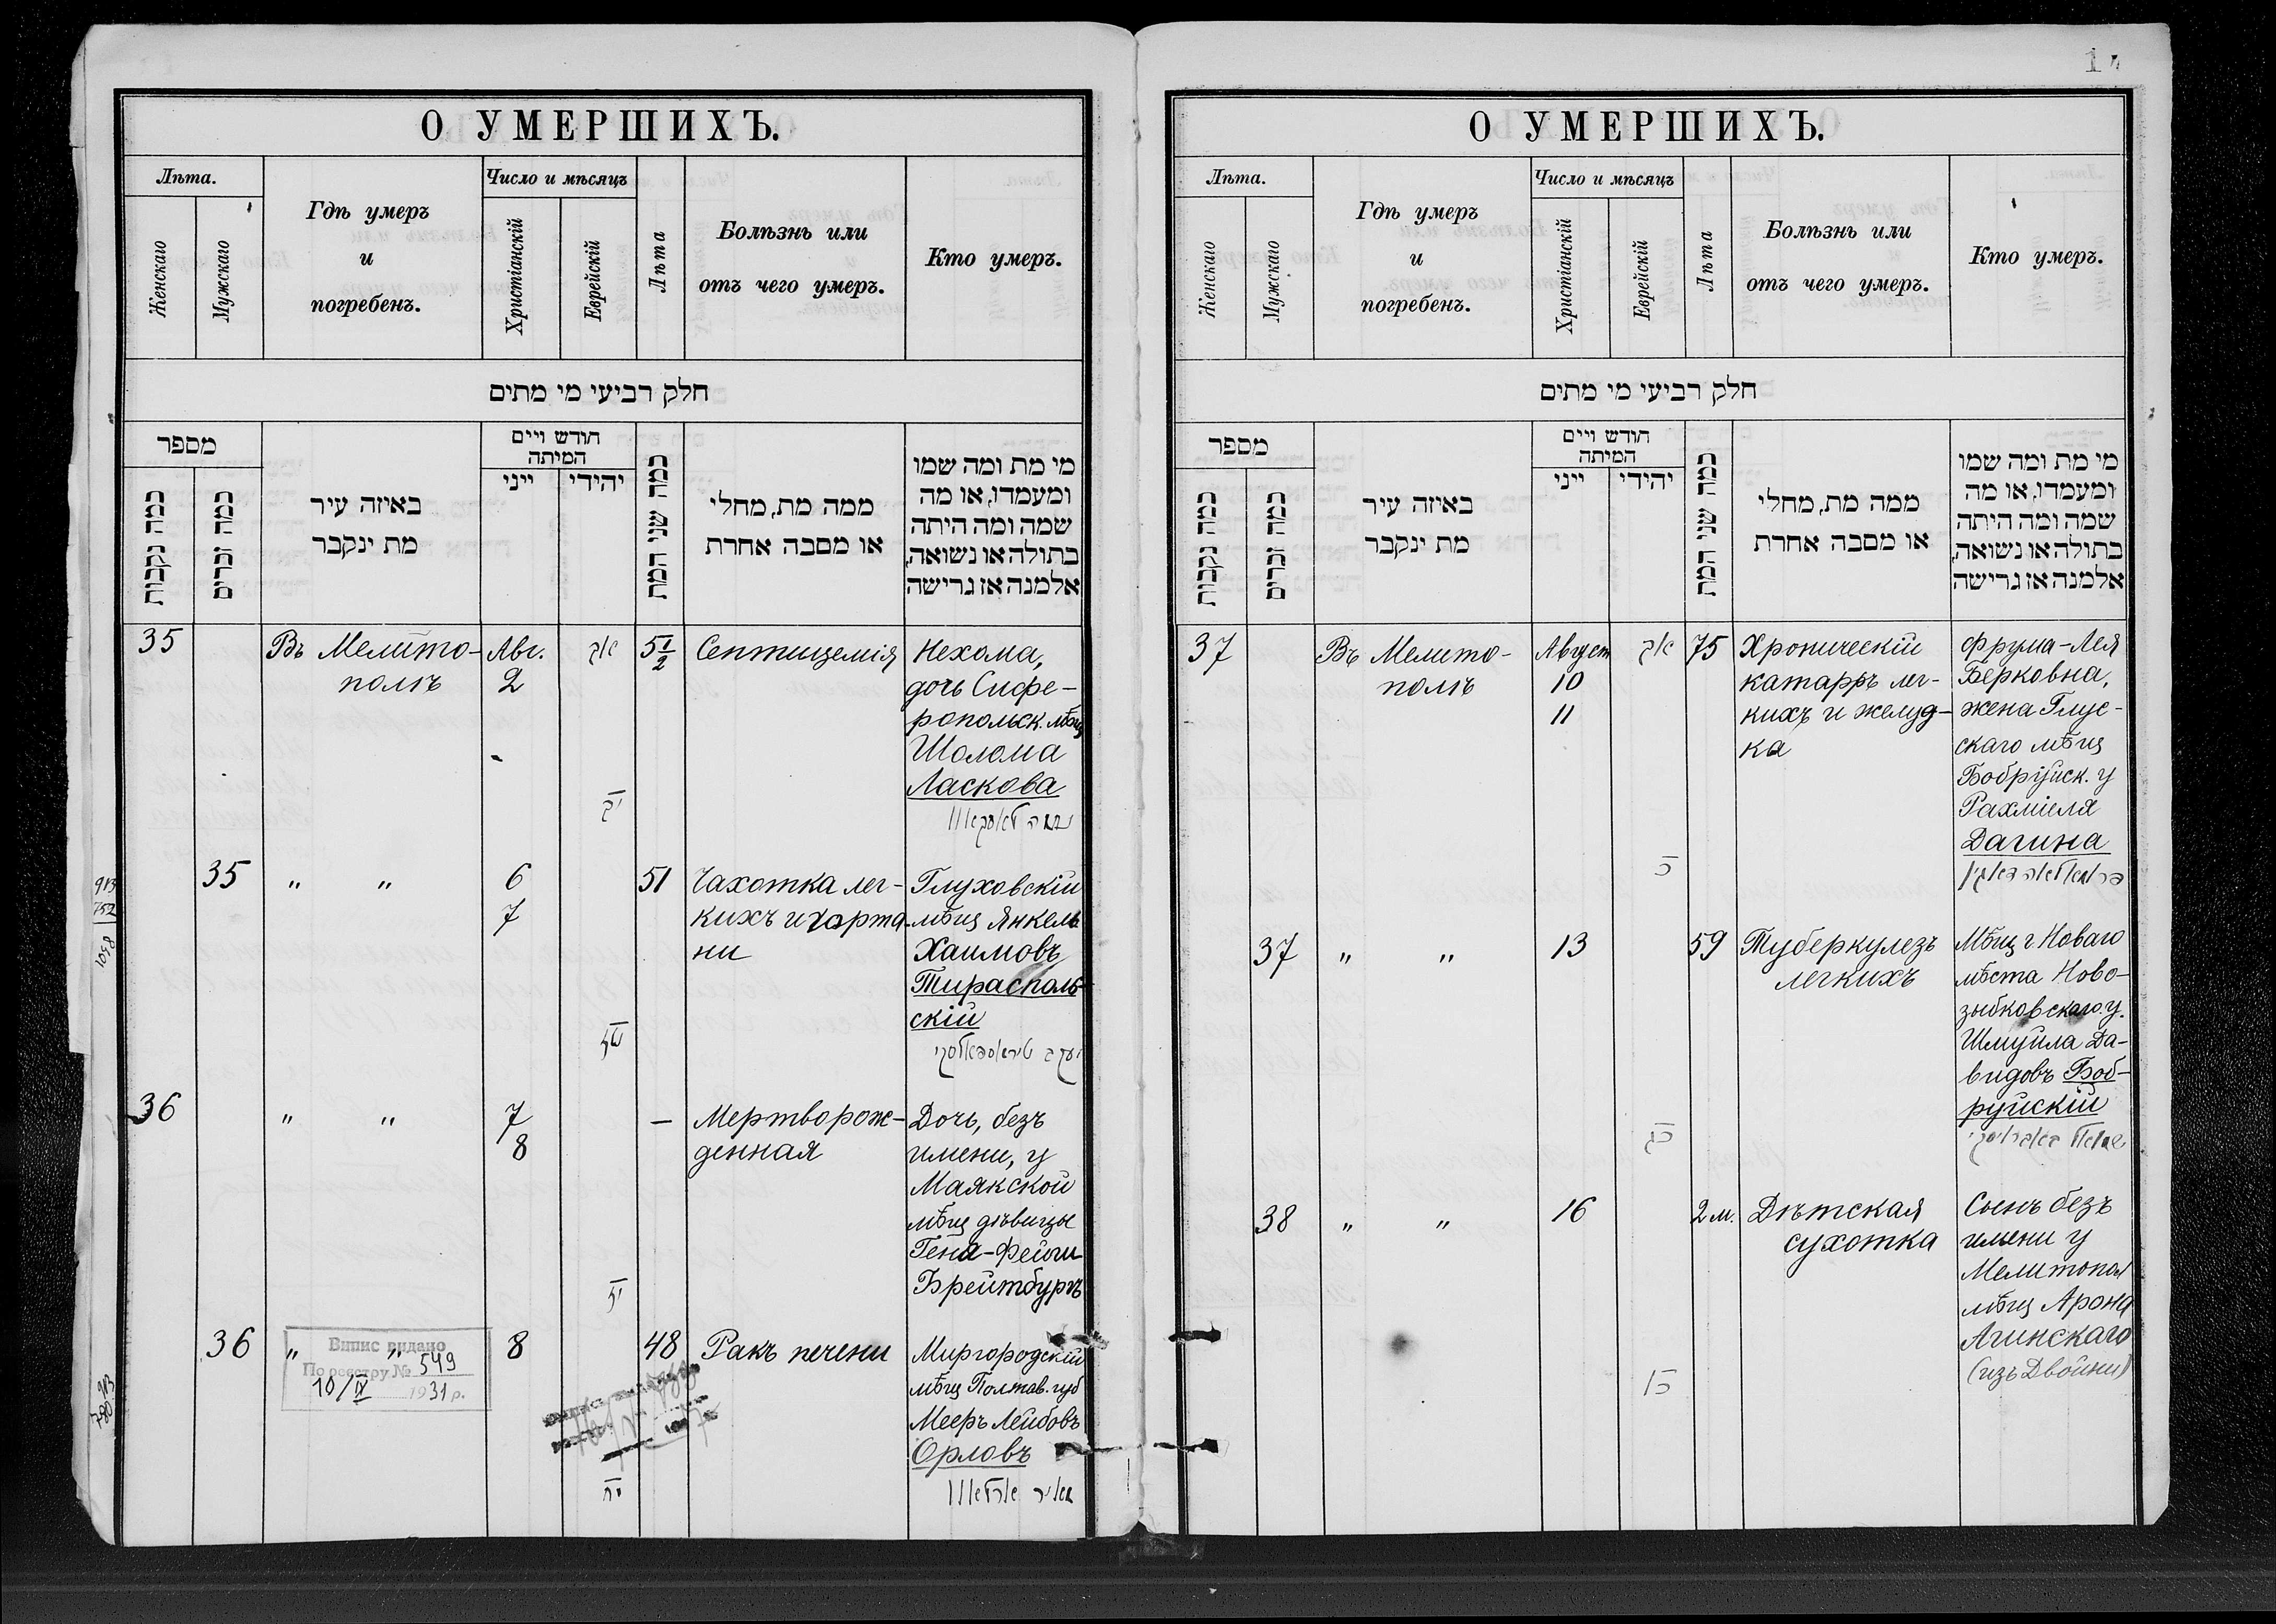 О УМЕРШИХЪ.
Лѣта.
Женскаго
Мужскаго
Гдѣ умеръ
и
погребенъ.
Число и мѣсяцъ
Христіанскій
Еврейскій
Лѣта
Болѣзнь или
отъ чего умеръ.
Кто умеръ.
חלק רביעי מי מתים
מספר
כמה נקבות
כמה זכרים
באיזה עיר
מת ינקבר
חודש ויים
המיתה
ייני
יהידי
כמה שני המת
ממה מת, מחלי
או מסבה אחרת
מי מת ומה שמו
ומעמדו, או מה
שמה ומה היתה
בתולה או נשואה,
אלמנה אז גרישה
35
Въ Мелито-
полѣ
Авг.
2
אב
5 1/2
Септицемія
Нехома,
дочь Симфе-
ропольск. мѣщ
Шолома
Ласкова
יב
35
" "
6
7
51
Чахотка лег-
кихъ и горта-
ни
Глуховскій
мѣщ Янкель
Хаимовъ
Тирасполь-
скій
יעקב טיראספאלסקי
טז
36
" "
7
8
—
Мертворож-
денная
Дочь, безъ
имени, у
Маякской
мѣщ дѣвицы
Гена-Фейги
Брейтбургъ
יז
36
" "
8
48
Ракъ печени
Миргородскій
мѣщ Полтав. губ
Мееръ Лейбовъ
Орловъ
מאיר ארלאוו
יח
Випис видано
По реєстру № 549
10/IV 1931 р.
913
752
1058
913
780
О УМЕРШИХЪ.
Лѣта.
Женскаго
Мужскаго
Гдѣ умеръ
и
погребенъ.
Число и мѣсяцъ
Христіанскій
Еврейскій
Лѣта
Болѣзнь или
отъ чего умеръ.
Кто умеръ.
חלק רביעי מי מתים
מספר
כמה נקבות
כמה זכרים
באיזה עיר
מת ינקבר
חודש ויים
המיתה
ייני
יהידי
כמה שני המת
ממה מת, מחלי
או מסבה אחרת
מי מת ומה שמו
ומעמדו, או מה
שמה ומה היתה
בתולה או נשואה,
אלמנה אז גרישה
37
Въ Мелито-
полѣ
Август
10
11
אב
75
Хроническій
катарръ лег-
кихъ и желуд-
ка
Фрума-Лея
Берковна,
жена Глус-
скаго мѣщ
Бобруйск. у
Рахміеля
Дагина
כ
37
" "
13
59
Туберкулезъ
легкихъ
Мѣщ г. Новаго
мѣста Ново-
зыбковскаго у.
Шмуйла Да-
видовъ Боб-
руйскій
שמואל באברויסקי
כג
38
" "
16
2 м.
Дѣтская
сухотка
Сынъ безъ
имени у
Мелитопол
мѣщ Арона
Агинскаго
(изъ Двойни)